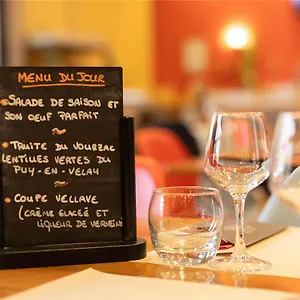 MENU DU JOUR
SALADE DE SAISON ET
SON OEUF PARFAIT
TRUITE DU VOURZAC
LENTILLES VERTES DU
PUY-EN-VELAY
COUPE VELLAVE
(CRÈME GLACÉE ET
LIQUEUR DE VERVEINE